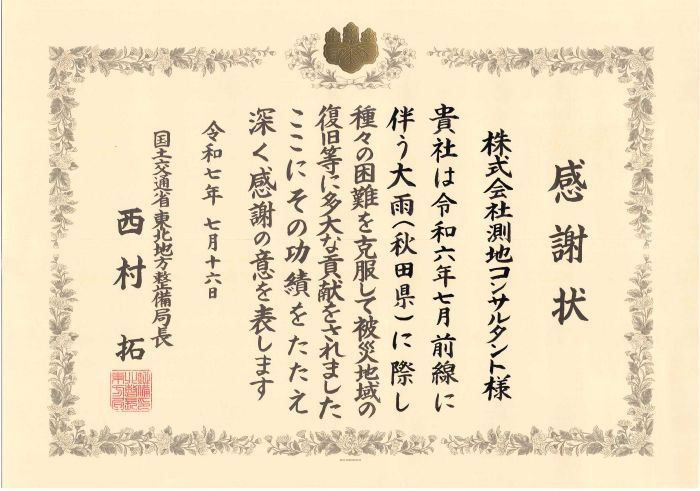 感謝状
株式会社測地コンサルタント様
貴社は令和六年七月前線に
伴う大雨(秋田県)に際し
種々の困難を克服して被災地域の
復旧等に多大な貢献をされました
ここにその功績をたたえ
深く感謝の意を表します
令和七年七月十六日
国土交通省東北地方整備局長
西村拓